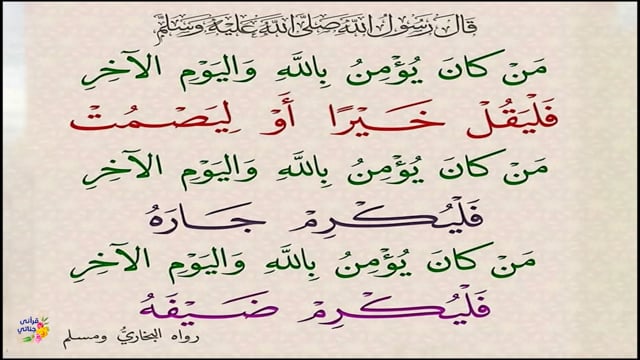 قَالَ رَسُولُ اللهِ صَلَّى اللهُ عَلَيْهِ وَسَلَّم
مَنْ كَانَ يُؤْمِنُ بِاللَّهِ وَالْيَوْمِ الْآخِرِ
فَلْيَقُلْ خَيْرًا أَوْ لِيَصْمُتْ
مَنْ كَانَ يُؤْمِنُ بِاللَّهِ وَالْيَوْمِ الْآخِرِ
فَلْيُكْرِمْ جَارَهُ
مَنْ كَانَ يُؤْمِنُ بِاللَّهِ وَالْيَوْمِ الْآخِرِ
فَلْيُكْرِمْ ضَيْفَهُ
رواه البخاريُّ ومسلم
قرآني
جناتي